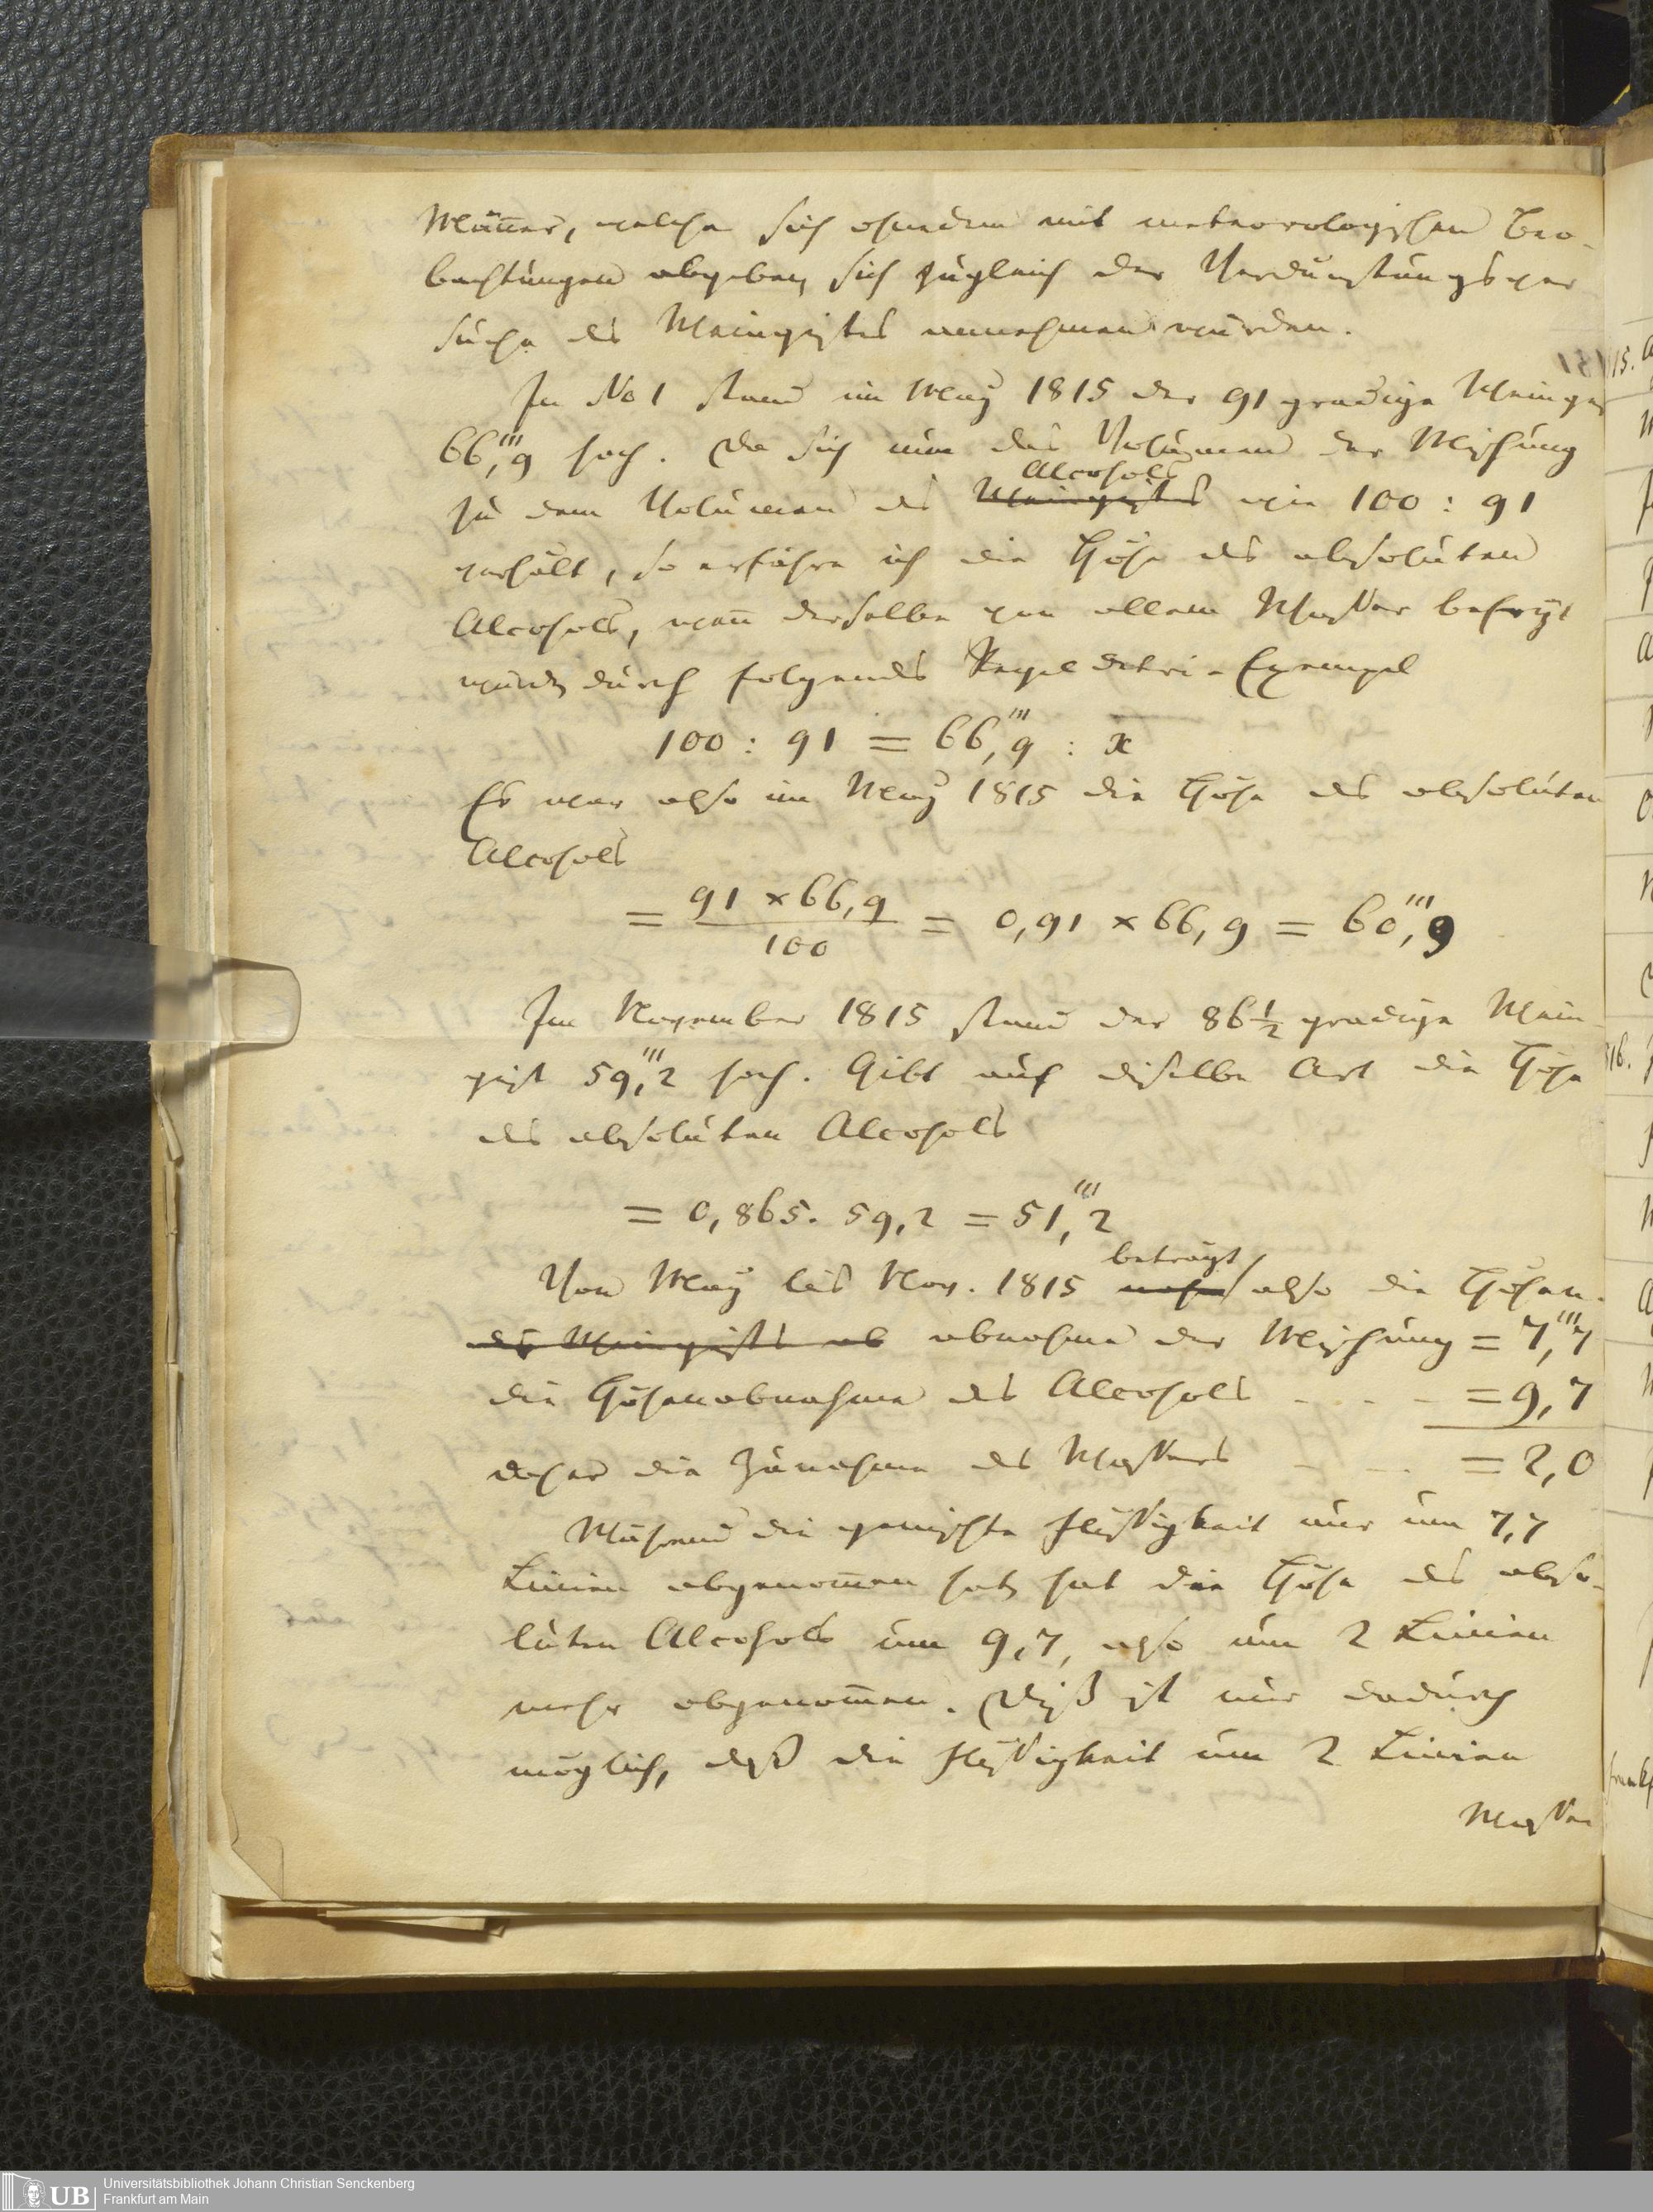 Mäñer, welche sich ohnedem mit meteorologischen Beo-
bachtungen abgeben, sich zugleich der Verdunstungsver
suche des Weingeistes annehmen würden.
In No 1 stand im May 1815 der 91 gradige Weingei
66,'''9 hoch. Da sich nun das Volumen der Mischung
Alcohols
zu dem Volumen des Weingeistes wie 100 : 91
verhält, so erfahre ich die Höhe des absoluten
Alcohols, weñ derselbe von allem Wasser befreyt
würde, durch folgendes Regel detri-Exempel
100 : 91 = 66,'''9 : x
Es war also im May 1815 die Höhe des absoluten
Alcohols
= 91 × 66,9 / 100 = 0,91 × 66,9 = 60,'''9
Im November 1815 stand der 86 1/2 gradige Wein-
geist 59,'''2 hoch. Gibt auf dieselbe Art die Höhe
des absoluten Alcohols
= 0,865. 59,2 = 51,'''2
beträgt
Von May bis Nov. 1815 nahm also die Höhen-
des Weingeists ab abnahme der Mischung = 7,'''7
die Höhenabnahme des Alcohols - - - = 9,7
daher die Zunahme des Wassers - - = 2,0
Während die gemischte Flüssigkeit nur um 7,7
Linien abgenom̄en hat, hat die Höhe des abso-
luten Alcohols um 9,7, also um 2 Linien
mehr abgenom̄en. Dieß ist nur dadurch
möglich, daß die Flüssigkeit um 2 Linien
Wasser
UB Universitätsbibliothek Johann Christian Senckenberg
Frankfurt am Main